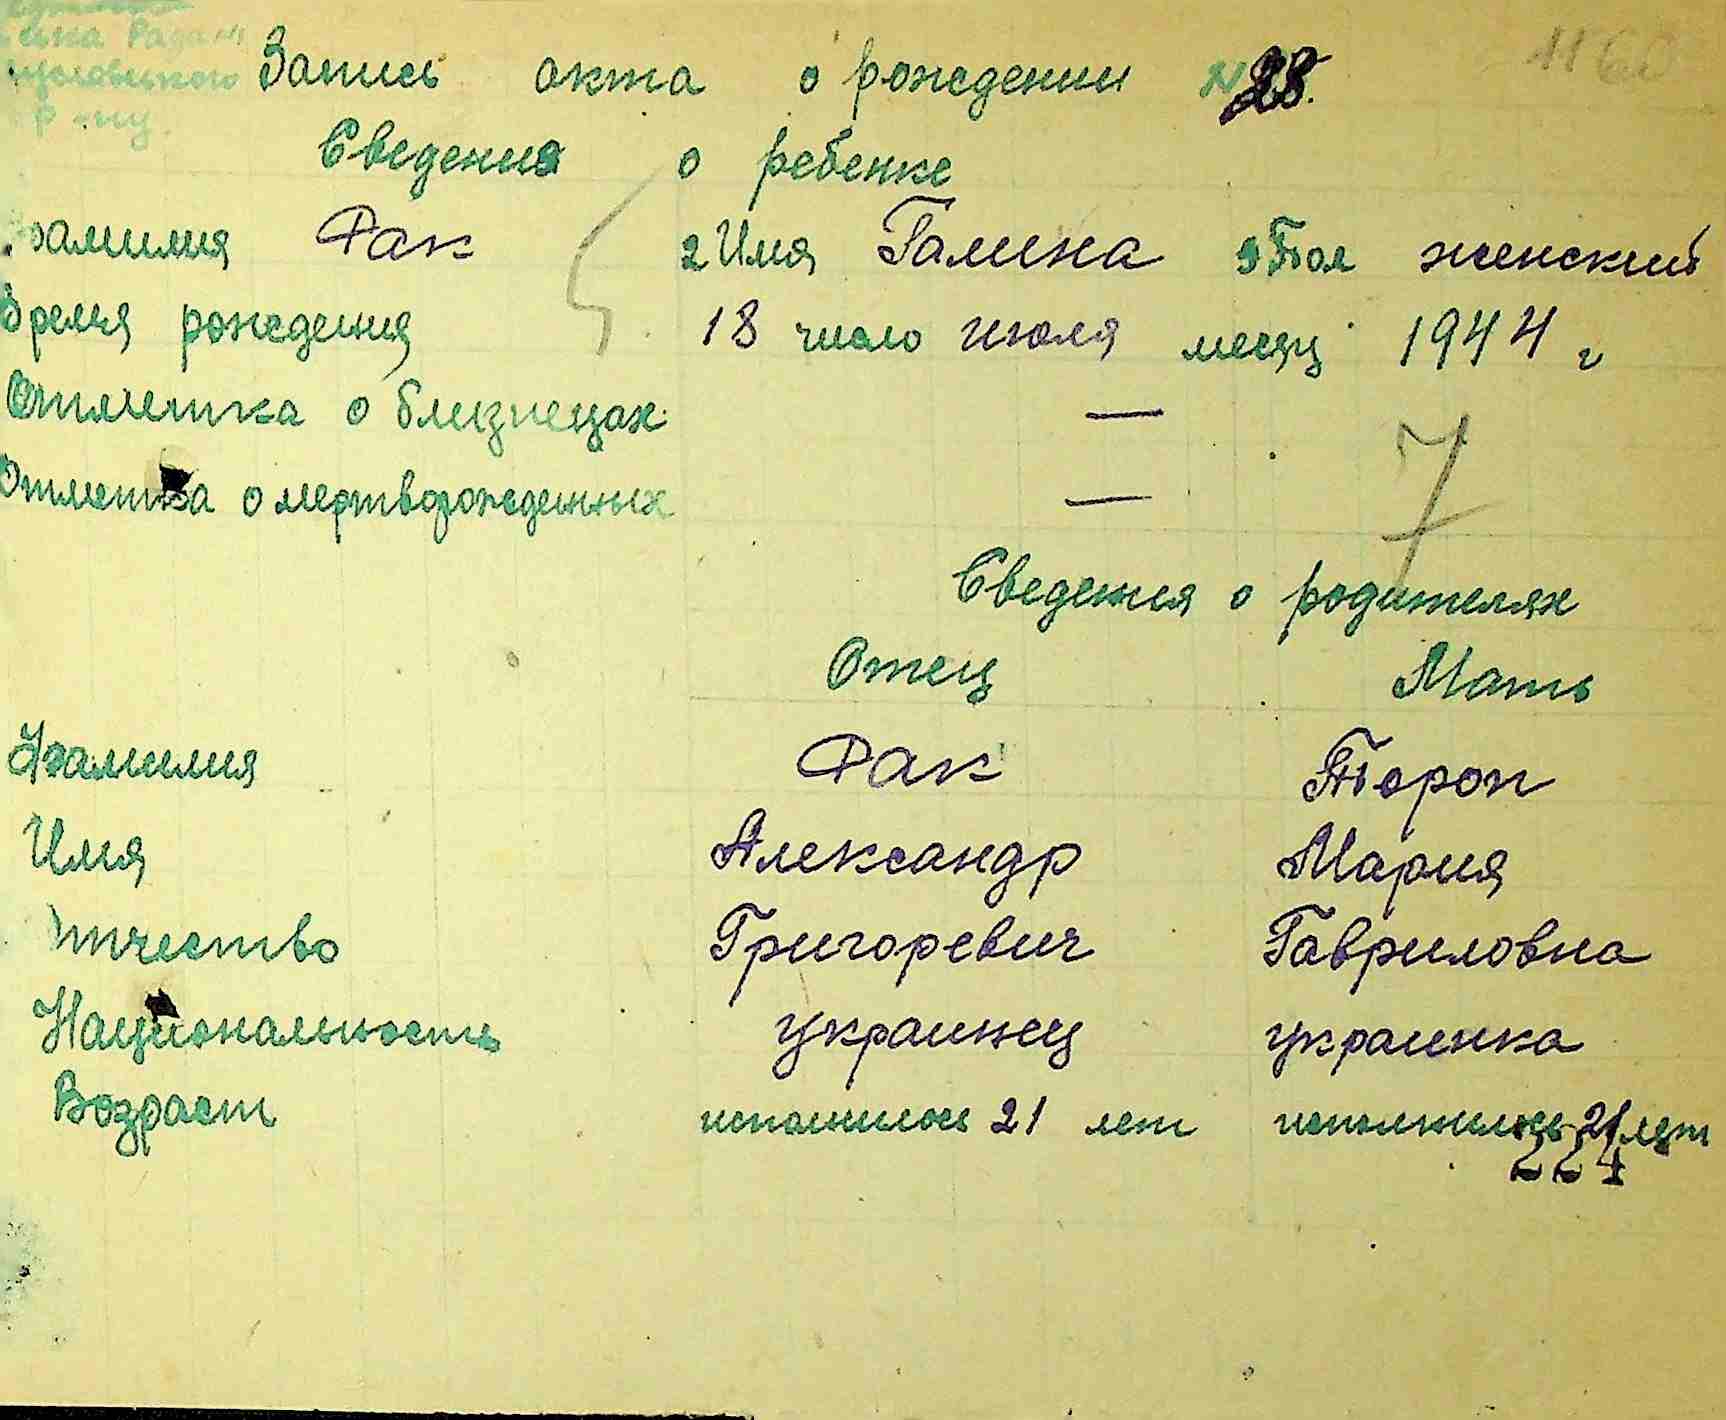 Рада
Запись акта о рождении N 28.
1160
р-ну.
Сведения о ребенке
Фамилия Фак 2 Имя Галина 3 Пол женский
Время рождения 18 число июля месяц 1944 г
Отметка о близнецах —
7
Отметка о мертворожденных —
Сведения о родителях
Отец Мать
Фамилия Фак Тороп
Имя Александр Мария
Отчество Григоревич Гавриловна
Национальность украинец украинка
Возраст исполнилось 21 лет исполнилось 21 лет
224